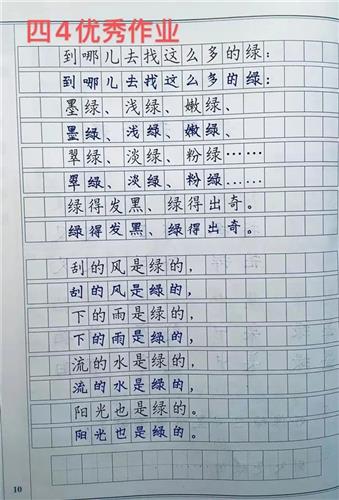 四4优秀作业
到哪儿去找这么多的绿：
到哪儿去找这么多的绿：
墨绿、浅绿、嫩绿、
墨绿、浅绿、嫩绿、
翠绿、淡绿、粉绿……
翠绿、淡绿、粉绿……
绿得发黑、绿得出奇。
绿得发黑、绿得出奇。
刮的风是绿的，
刮的风是绿的，
下的雨是绿的，
下的雨是绿的，
流的水是绿的，
流的水是绿的，
阳光也是绿的。
阳光也是绿的。
10